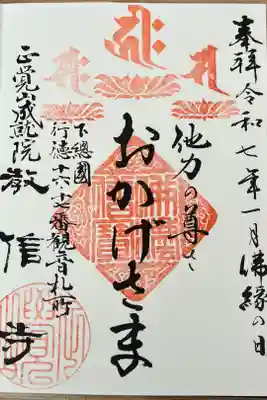 奉拝 令和七年一月佛縁の日
他力の尊さ
おかげさま
下總國
行徳十六十七番観音札所
正覚山成就院
教信寺